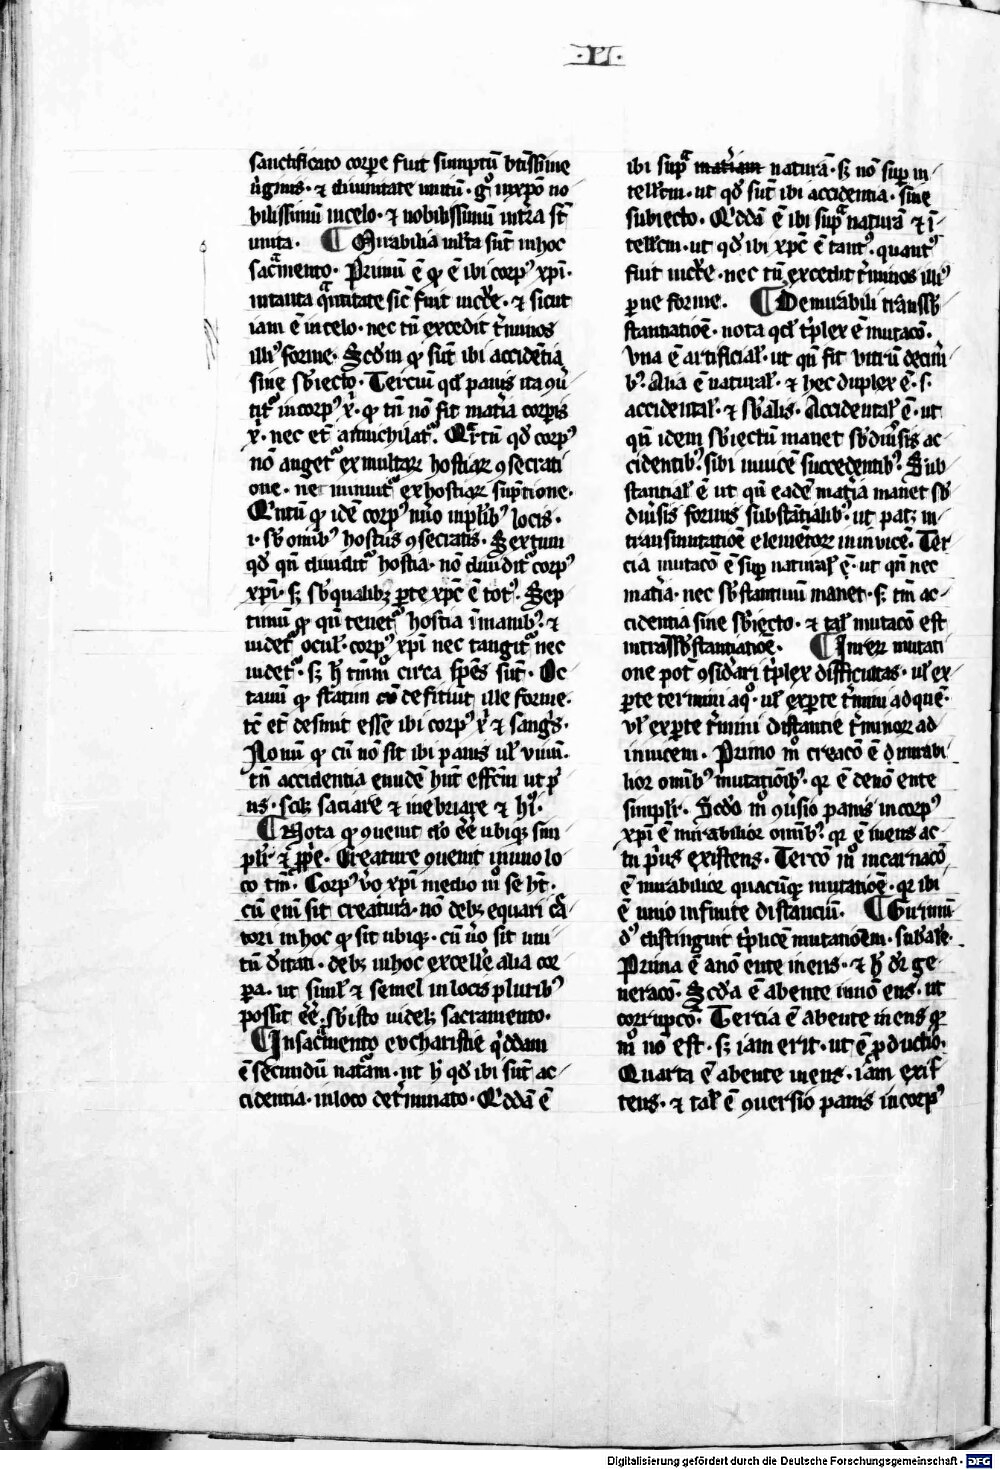 ·VI·
sanctificato corpe fuit sumptū btissīe
v̇ginis · ⁊ diuinitate unitū · gͦ in xpō no
bilissimū in celo · ⁊ nobilissimū in tr̄a st̄
unita · ¶ Mirabilia ml̄ta sūt in hoc
sac̄mento · Primū ē qͥ ē ibi corpꝰ xp̄i ·
in tanta qͣntitate sic̄ fuit in cͦce · ⁊ sicut
iam ē in celo · nec tn̄ excedit t̄minos
illiꝰ forme · Scd̄m qͥ sūt ibi accidētia
sine sb̄iecto · Terciū qd̓ panis ita ꝯu̓
titͬ in corpꝰ x̄ · qͥ tn̄ nō fit mat̓ia corpis
x̄ · nec et̄ annichilatͬ · Qͣrtū qd̓ corpꝰ
nō augetͬ ex multaꝝ hostiaꝝ ꝯsecrati
one · nec minuitͬ ex hostiaꝝ sūptione ·
Qͥntū qͥ idē corpꝰ nͦo in pl̄ibꝰ locis ·
ı · sb̄ om̄ibꝰ hostiis ꝯsecratis · Sextum
qd̓ qn̄ diuiditͬ hostia · nō diuiditͬ corpꝰ
xp̄i · sꝫ sb̄ qualibꝫ ꝑte xp̄c ē totꝰ · Sep
timū qͥ qn̄ tenetͬ hostia ī manibꝰ · ⁊
uidetͬ ocul̓ · corpꝰ xp̄i nec tangitͬ nec
uidetͬ · sꝫ h̓ tm̄mͦ circa sp̄es sūt · Oc
tauū qͥ statim cū defitiūt ille forme ·
tc̄ et̄ desinit esse ibi corpꝰ x̄ ⁊ sangͥs ·
Nonū qͥ cū nō sit ibi panis ul̓ uinū ·
tn̄ accidentia eiudē hn̄t effc̄m ut pͥ
us · scilꝫ saciare ⁊ inebriare ⁊ hͥ ·
¶ Nota qͥ ꝯuenit d̓o ēe ubiqꝫ sim
pl̓r ⁊ ꝓp̄e · Creature ꝯuenit in uno lo
co tm̄ · Corpꝰ v̓o xp̄i medio mͦ se ht̄ ·
cū eni sit creatura · nō debꝫ equari c̄a
tori in hoc qͥ sit ubiqꝫ · cū u̓o sit uni
tū d̓itati · debꝫ in hoc excell̓e alia cor
ꝑa · ut simul̓ ⁊ semel in locis pluribꝰ
possit ēe · sb̄ isto uidelꝫ sacramento ·
¶ In sac̄mento euchäristie qͥddam
ē secundū natͬam · ut h̓ qd̓ ibi sūt ac
cidentia · in loco det̓minato · Qͥddā ē
ibi supͣ mat̓iam naturā · sꝫ nō supͣ in
tell̓cm · ut qd̓ sūt ibi accidentia · sine
subiecto · Qͥddā ē ibi supͣ naturā ⁊ ī
tell̓cm · ut qd̓ ibi xp̄c ē tantꝰ · quantꝰ
fuit in cͦce · nec tn̄ excedit t̄minos illiꝰ
ꝑue forme · ¶ De mirabili trāssb̄
stantiatiōe · nota qd̓ t̓plex ē mutacō ·
vna ē artificial̓ · ut qn̄ fit vitrū de cine
bꝰ · Alia ē natural̓ · ⁊ hec duplex ē · s ·
accidental̓ · ⁊ sb̄alis · Accidental̓ ē · ut
qn̄ idem sb̄iectū manet sb̄ diu̓sis ac
cidentibꝰ · sibi inuicē succedentibꝰ · Sub
stantial̓ ē ut qn̄ eadē mat̓ia manet sb̄
diu̓sis formis substantialibꝰ · ut patꝫ in
transmutatiōe elemētoꝝ in inuicē · Ter
cia mutacō ē supͣ natural̓ ē · ut qn̄ nec
mat̓ia · nec sb̄stantiuū manet · s · tm̄ ac
cidentia sine sb̄iecto · ⁊ tal̓ mutacō est
in trāssb̄stantiatiōe · ¶ Item mutati
one pot̄ ꝯsid̓ari t̓plex difficultas · ul̓ ex
ꝑte termini a qͦ · ul̓ ex ꝑte t̓mini ad quē ·
vl̓ ex ꝑte t̓mini distantie t̓minoꝝ ad
inuicem · Primo mͦ creacō ē mirabi
lior om̄ibꝰ mutatiōibꝰ · qꝛ ē de nō ente
simpl̓r · Scd̓o mͦ ꝯu̓sio panis in corpꝰ
xp̄i ē mirabilior om̄ibꝰ · qꝛ ē in ens ac
tu pͥus existens · Tercō mͦ incarnacō
ē mirabilior quacūqꝫ mutatiōe · qꝛ ibi
ē unio infinite distanciū · ¶
dꝰ distinguit t̓plicē mutatiōem · sub̓ale ·
Prima ē a nō ente in ens · ⁊ h̓ d̓r ge
neracō · Scd̓a ē ab ente in nō ens · ut
corrupcō · Tercia ē ab ente in ens qͥ
mͦ nō est · sꝫ iam erit · ut ē ꝓductio ·
Quarta ē ab ente in ens · iam exis
tens · ⁊ tal̓ ē ꝯuersio panis in corpꝰ
Digitalisierung gefördert durch die Deutsche Forschungsgemeinschaft - DFG